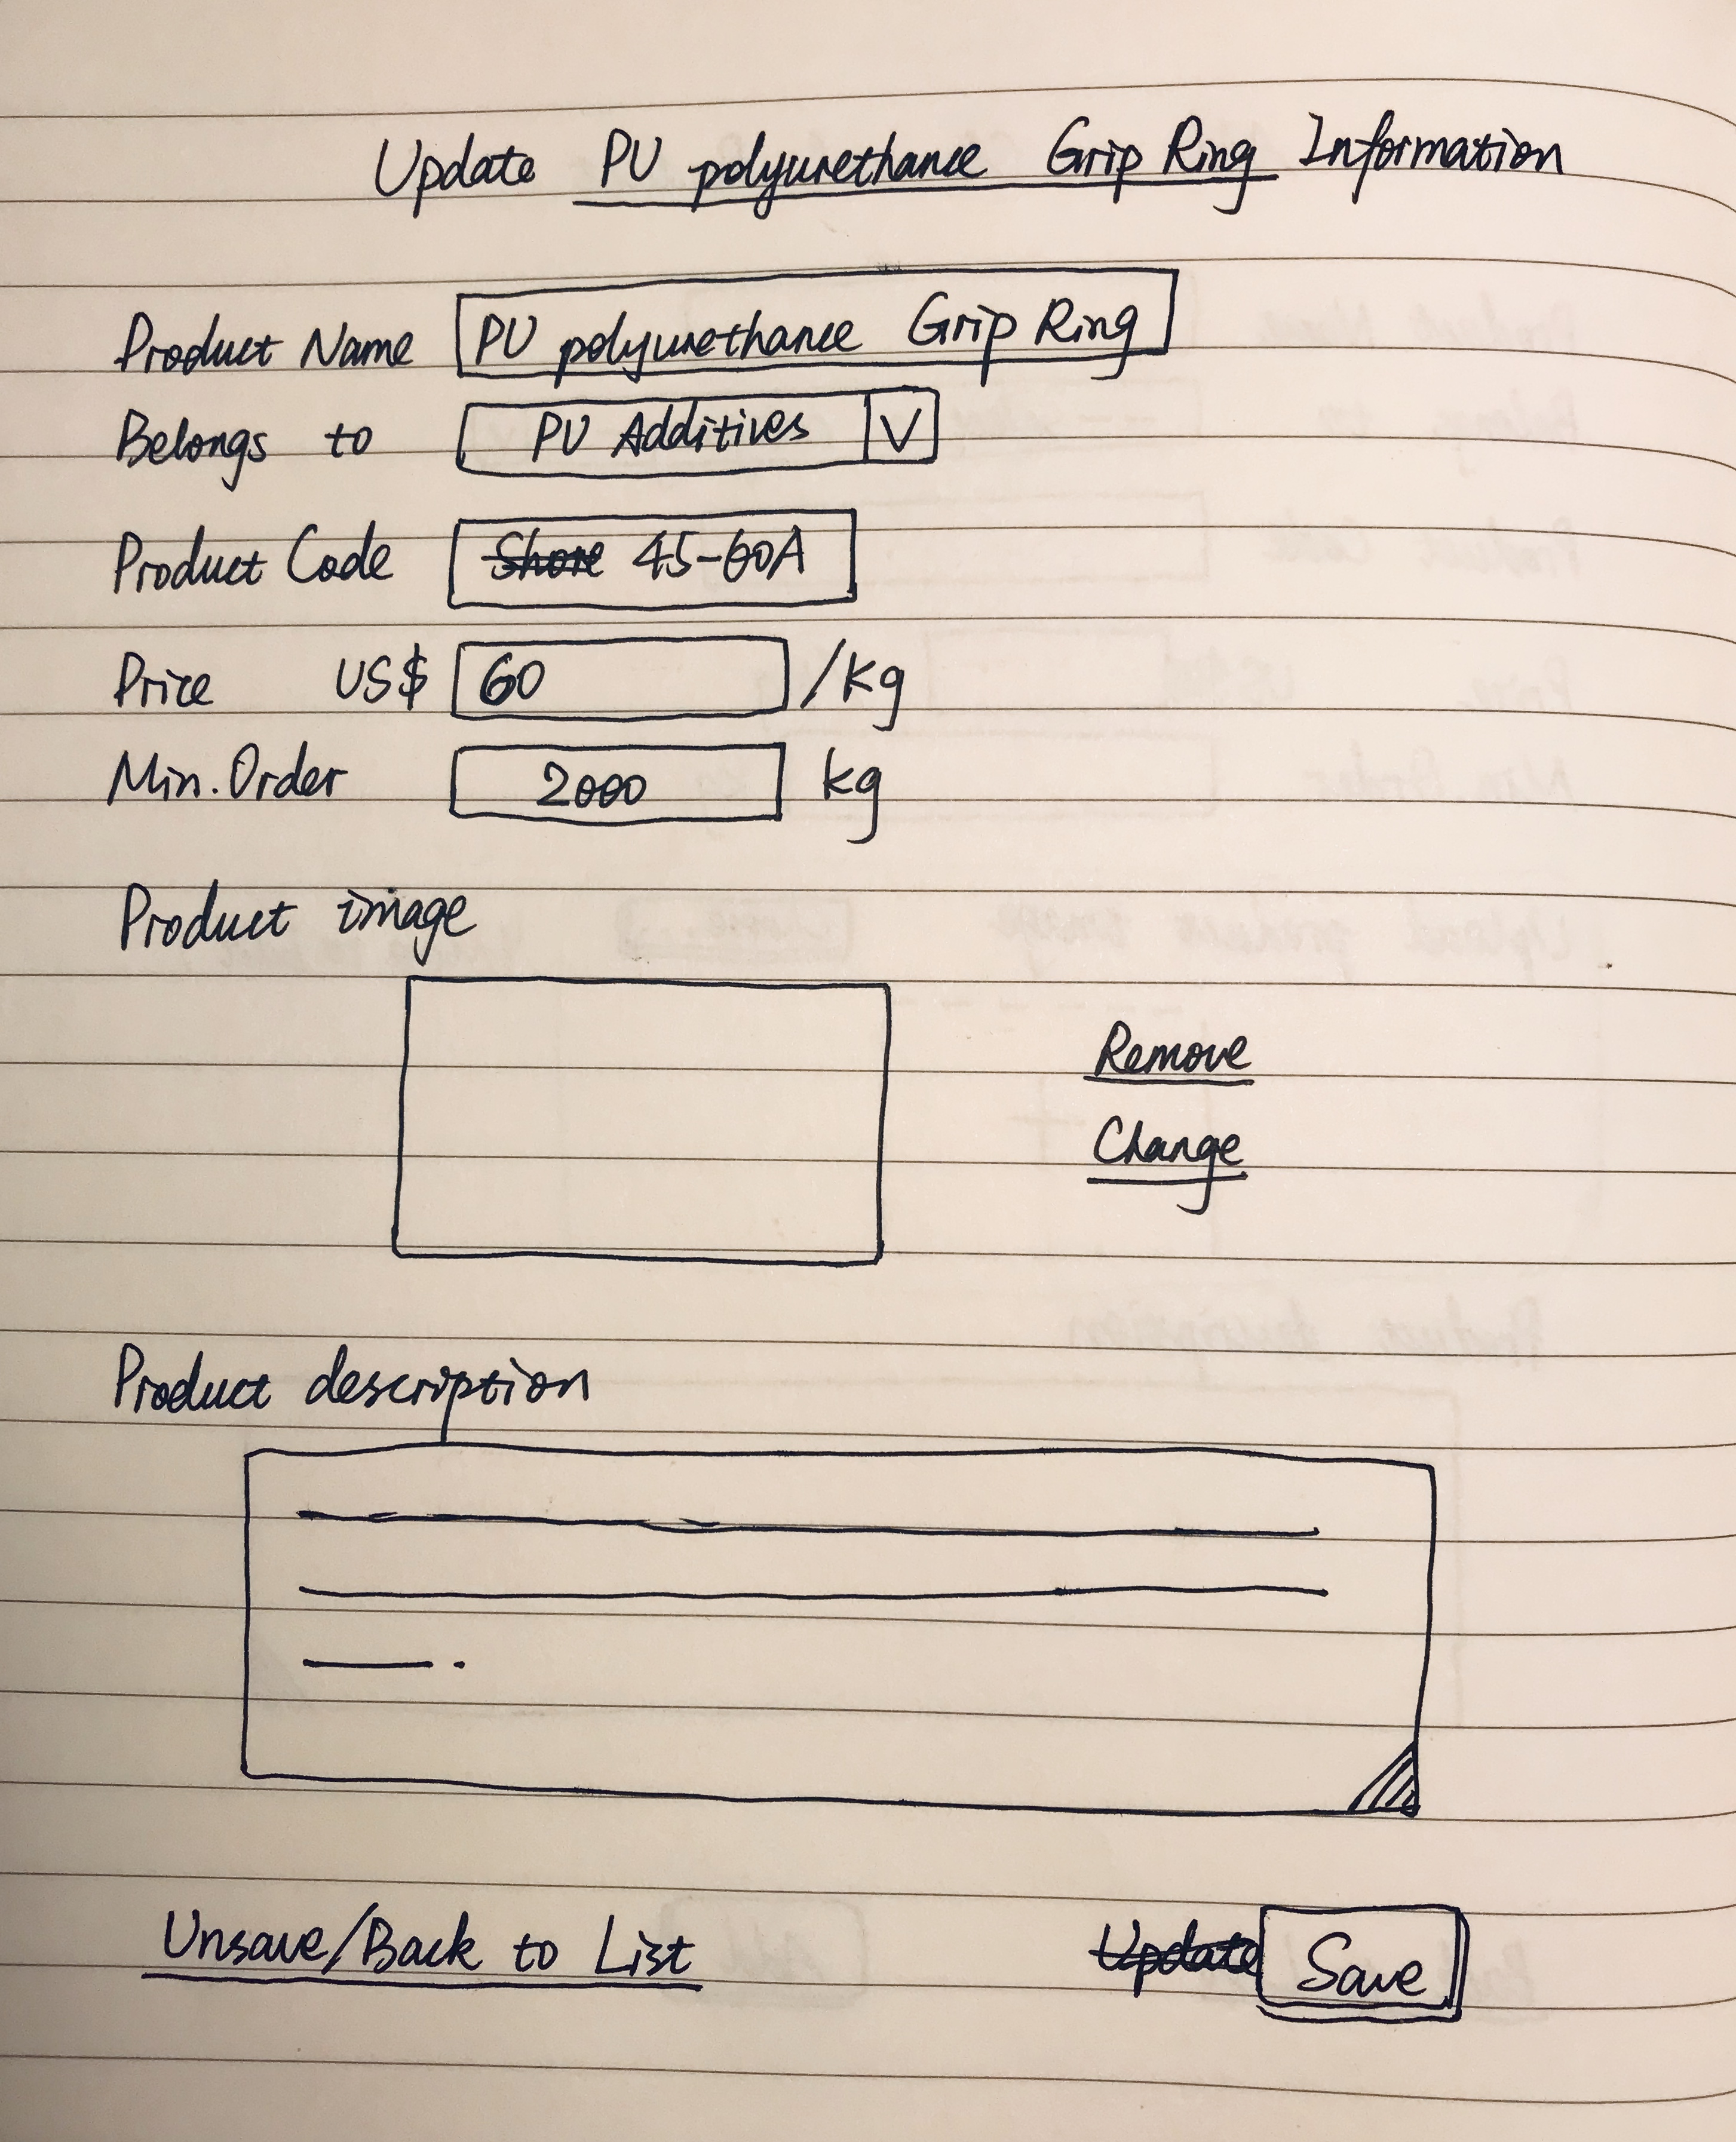 Update PU polyurethance Grip Ring Information
Product Name PU polyurethance Grip Ring
Belongs to PU Additives V
Product Code Shore 45-60A
Price US$ 60 /kg
Min. Order 2000 kg
Product image
Remove
Change
Product description
Unsave/Back to List Update Save